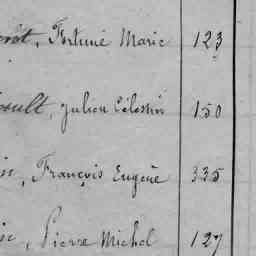 , Fortuné Marie 123
, Julien Célestin 150
, François Eugène 335
, Pierre Michel 127